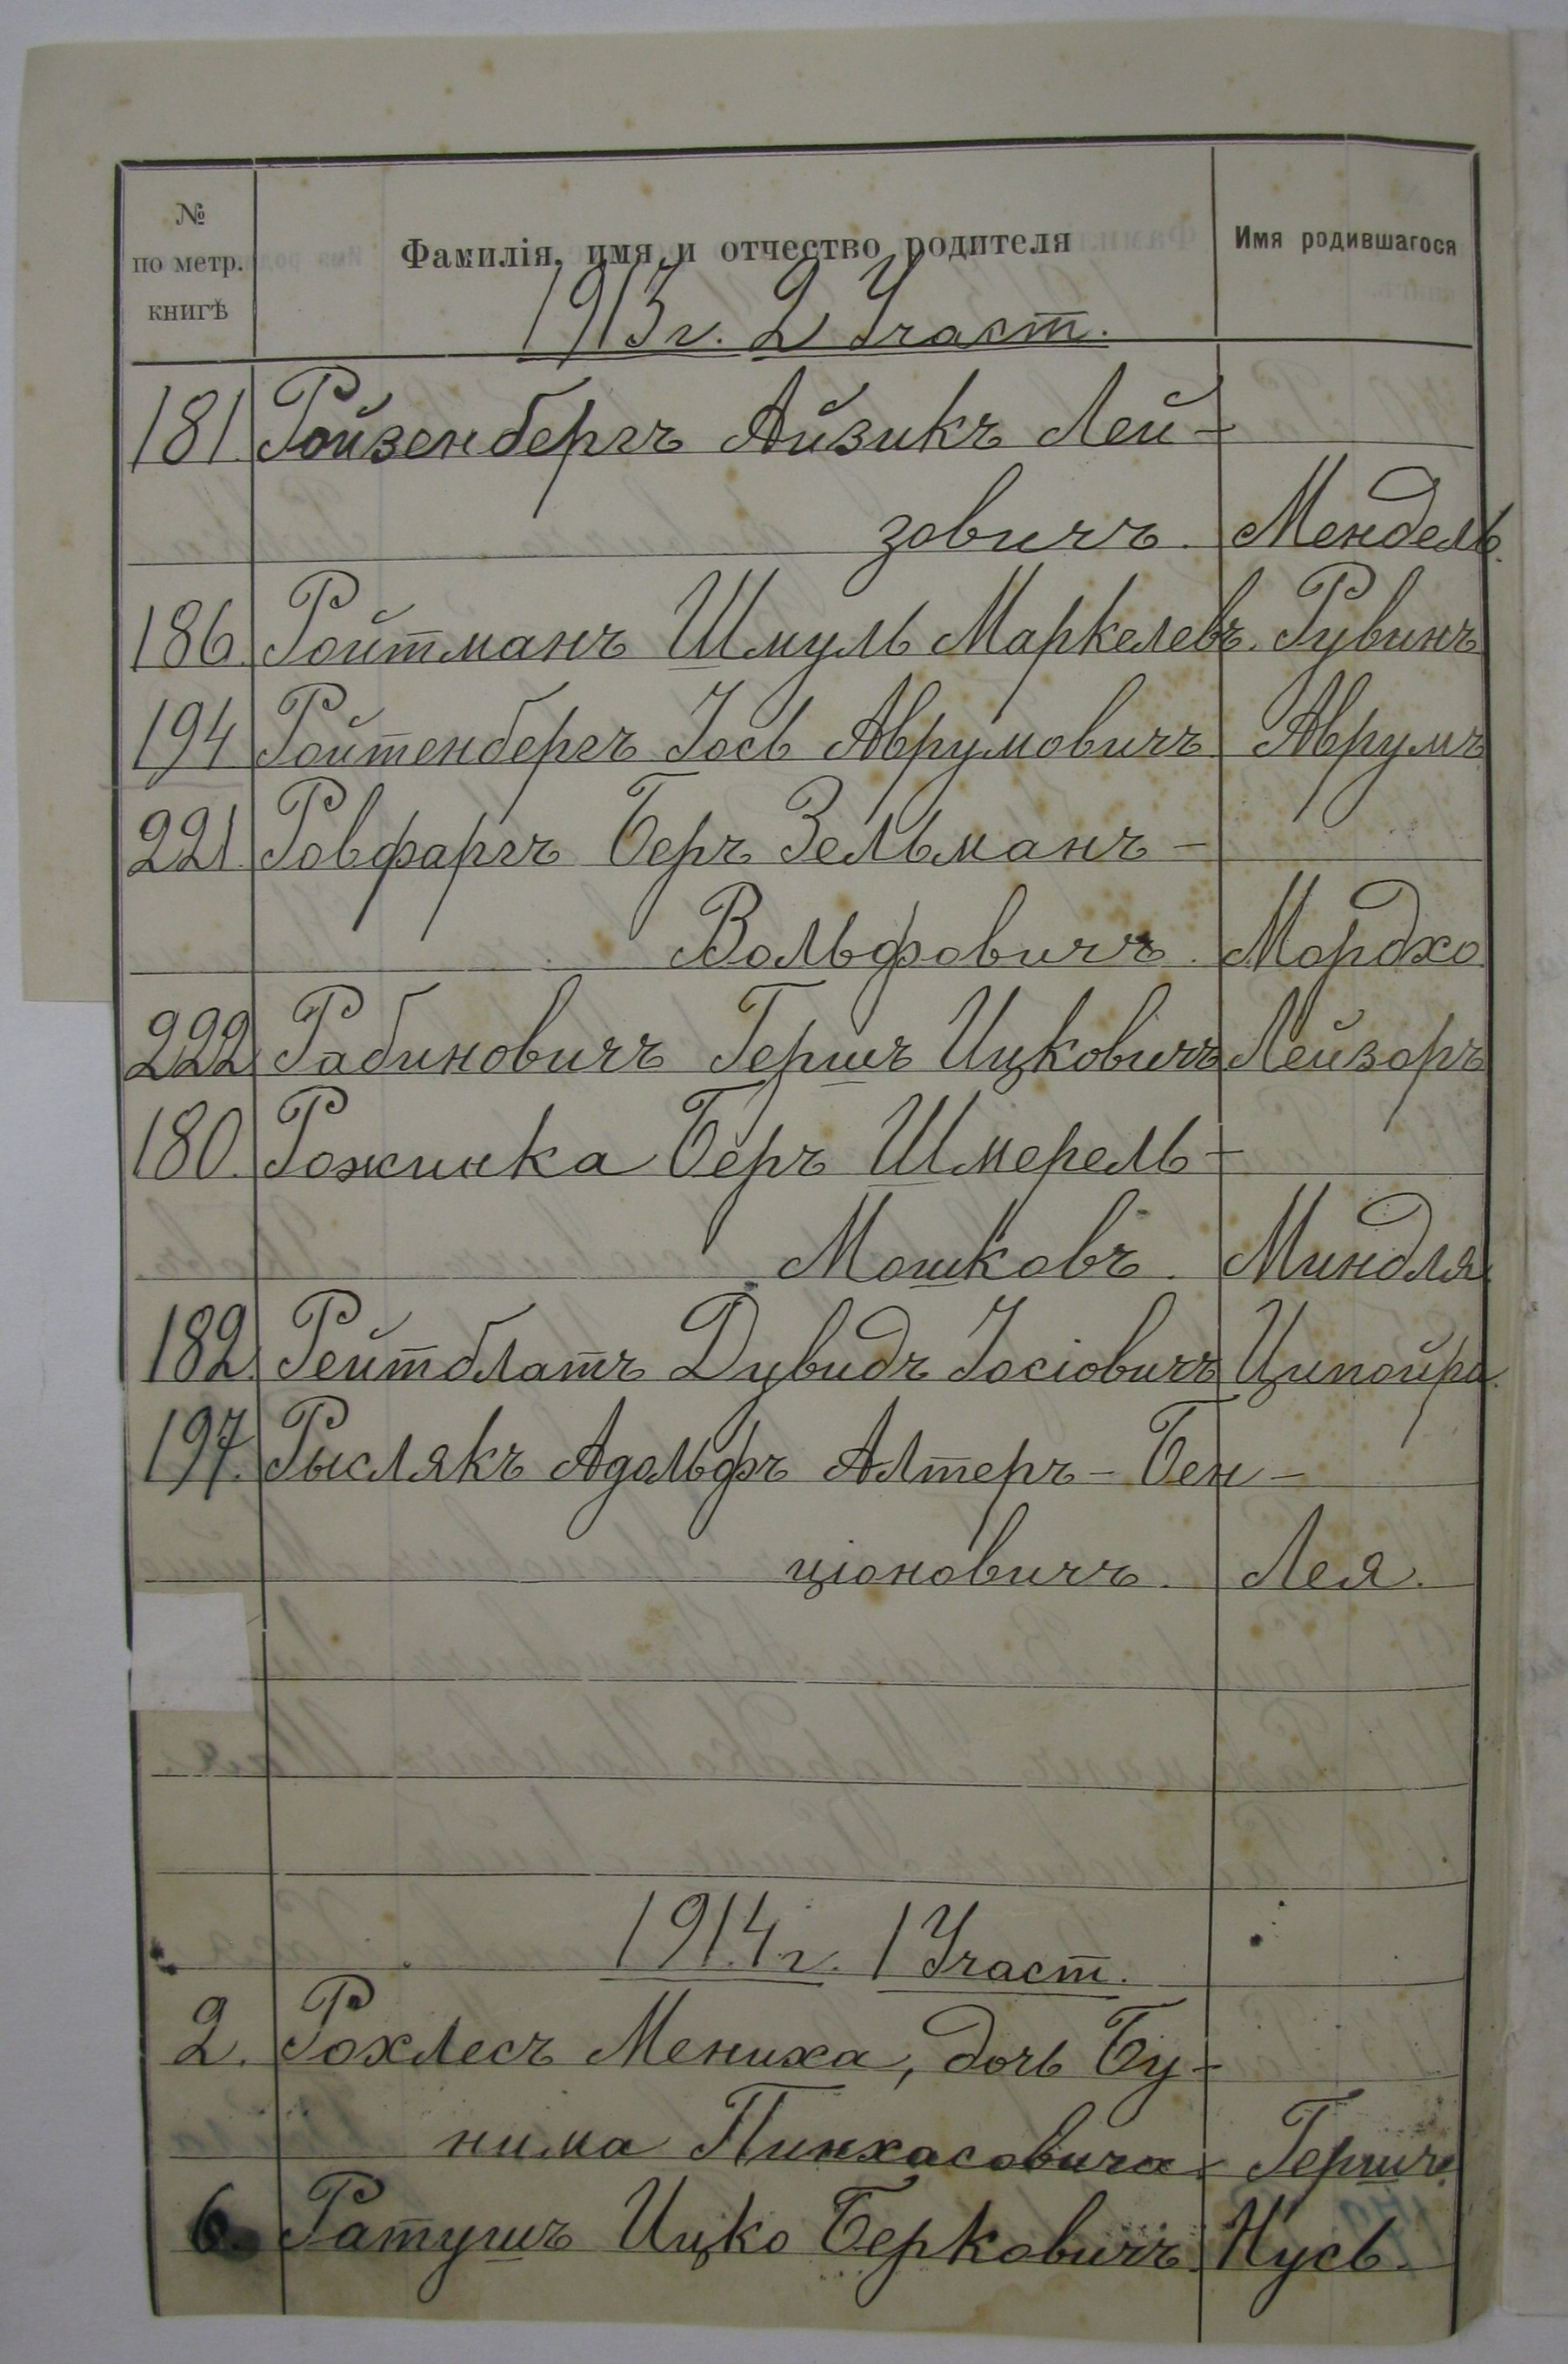 № по метр. книгѣ Фамилія, имя и отчество родителя Имя родившагося
1913 г. 2 Участ.
181. Ройзенбергъ Айзикъ Лей-
зовичъ. Мендель.
186. Ройтманъ Шмуль Маркелевъ. Рувинъ
194 Ройтенбергъ Іось Аврумовичъ Аврумъ
221. Ровфаргъ Беръ Зельманъ-
Вольфовичъ. Мордхо
222 Рабиновичъ Гершъ Ицковичъ Лейзоръ
180. Рожинка Беръ Шмерель-
Мошковъ. Миндля.
182. Рейтблатъ Дувидъ Іосіовичъ Ципойра.
197. Рыслякъ Адольфъ Алтеръ-Бен-
ціоновичъ. Лея.
1914 г. 1 Участ.
2. Рохлесъ Мениха, дочь Бу-
нима Пинхасовича. Гершъ.
6. Ратушъ Ицко Берковичъ. Нусь.